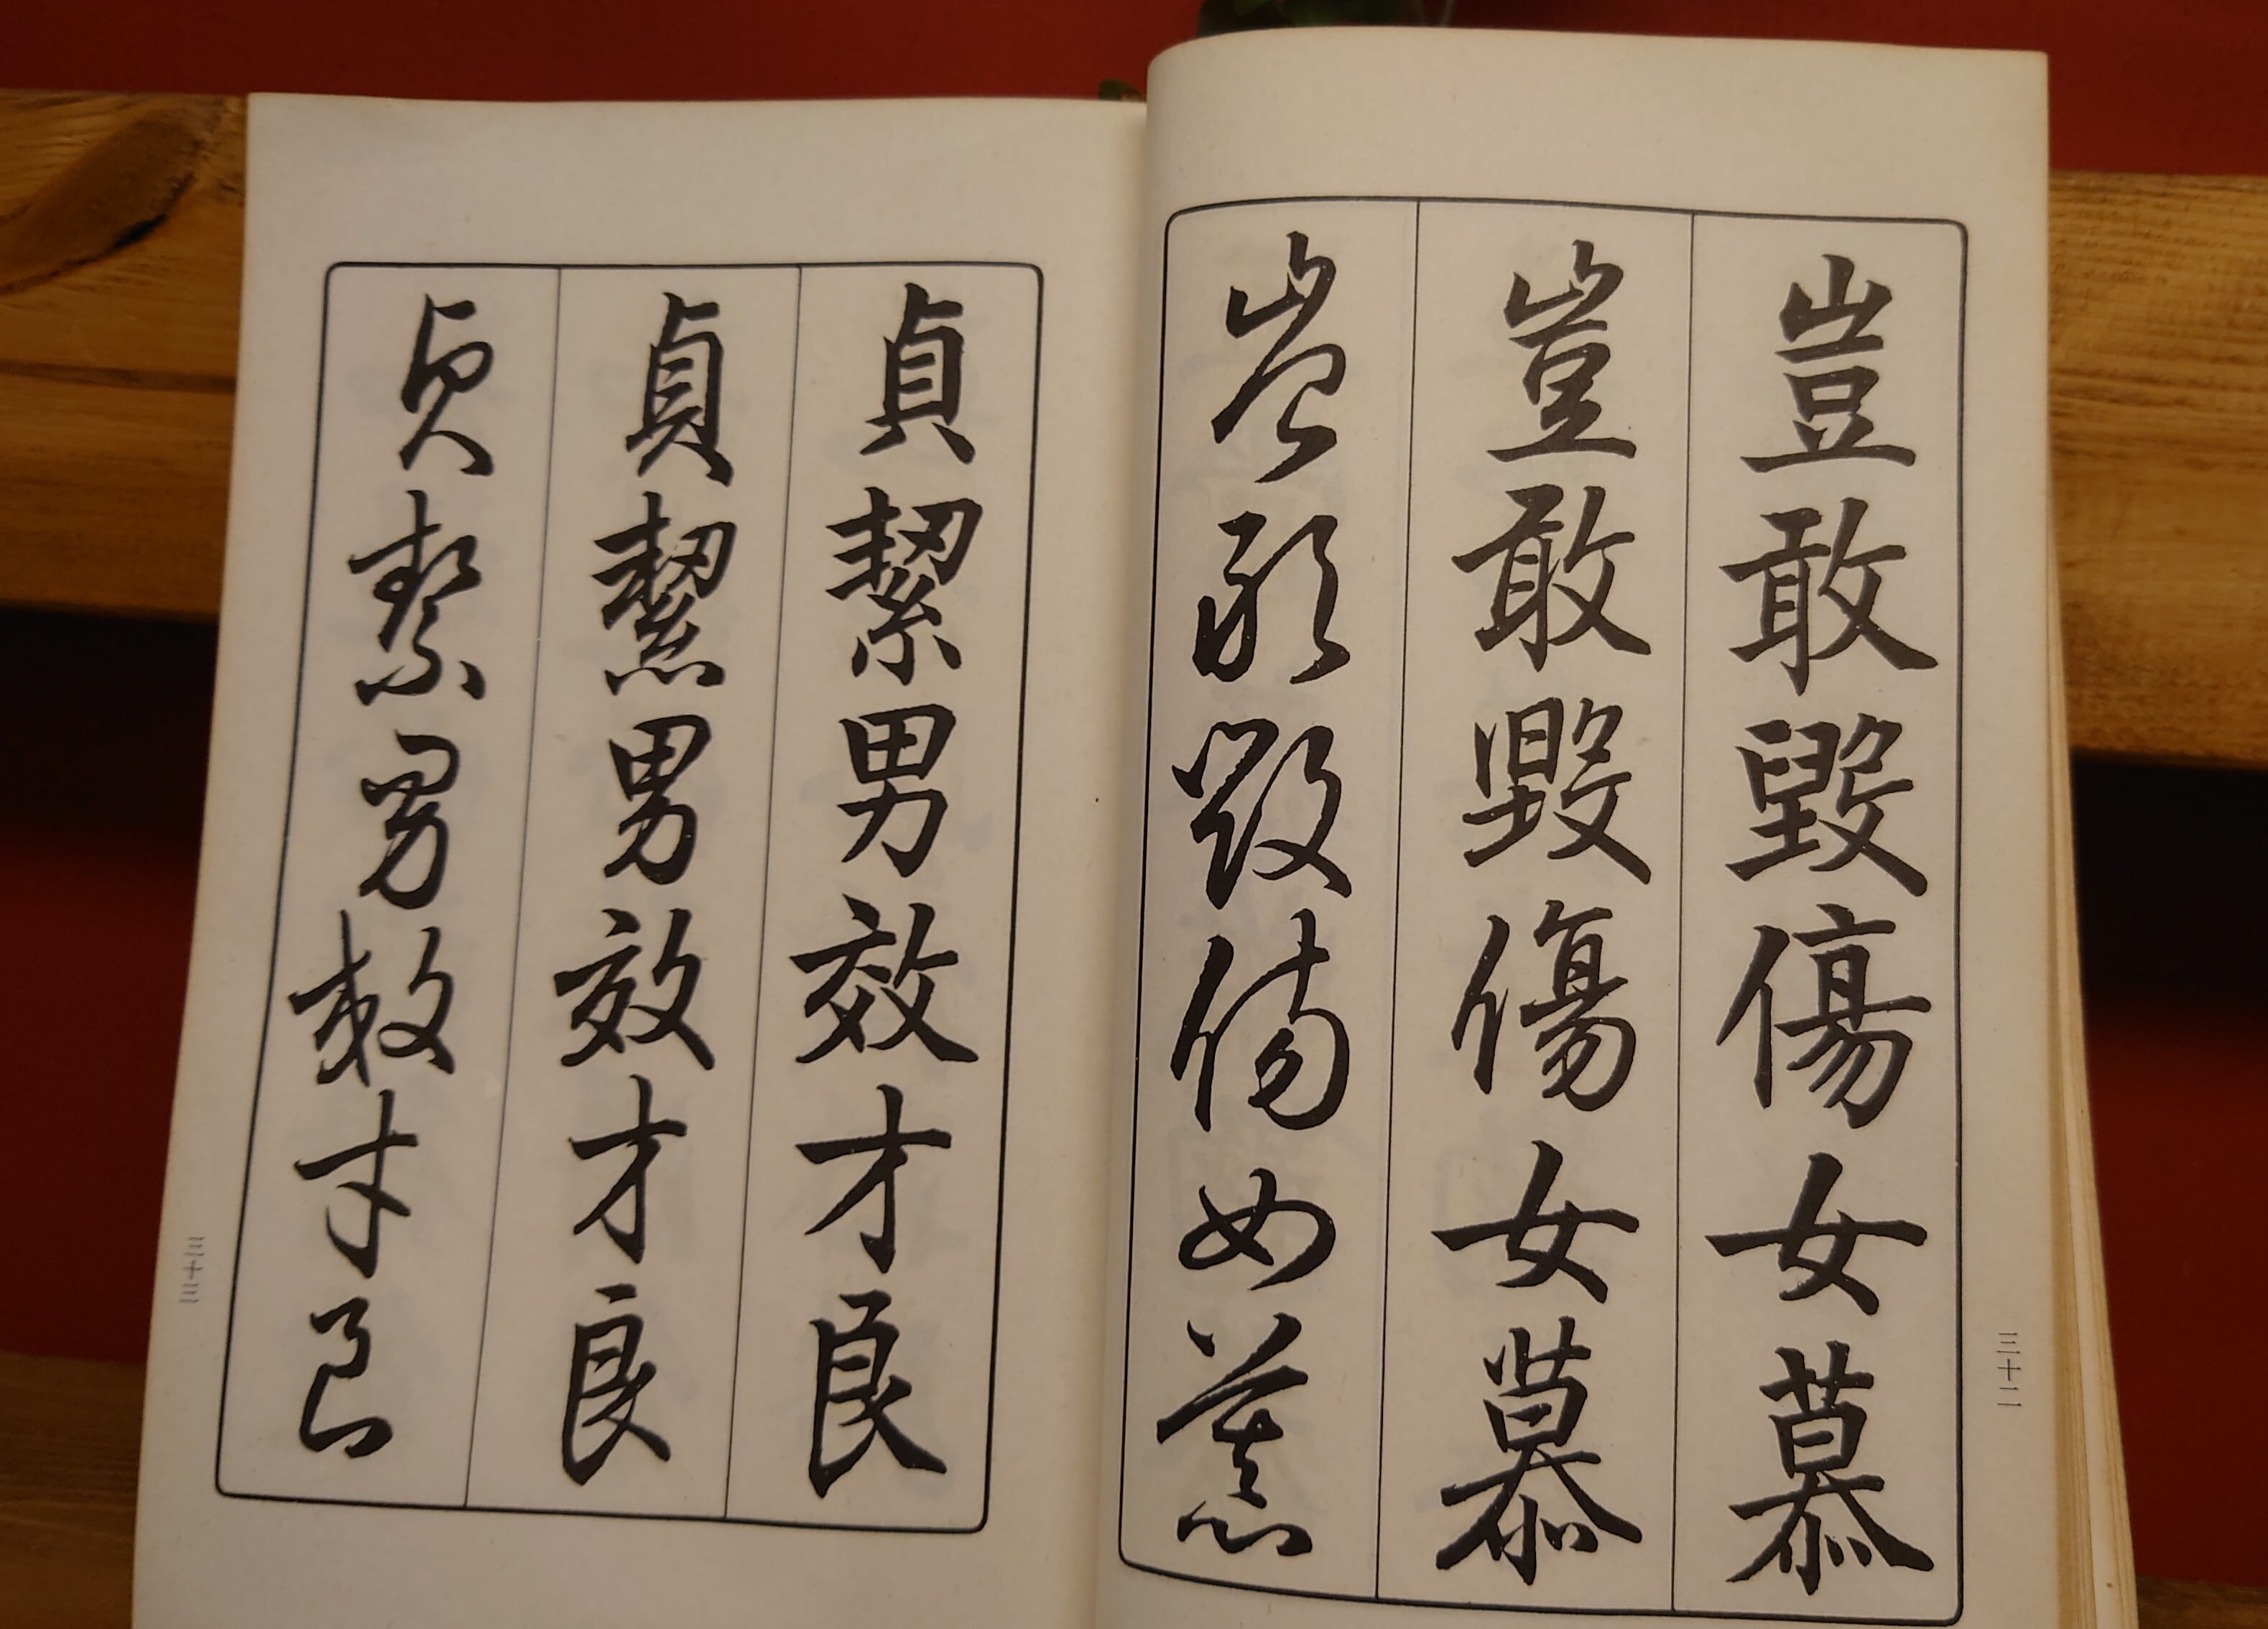 豈敢毀傷女慕
豈敢毀傷女慕
豈敢毀傷女慕
三十二
貞絜男效才良
貞潔男效才良
貞絜男效才良
三十三